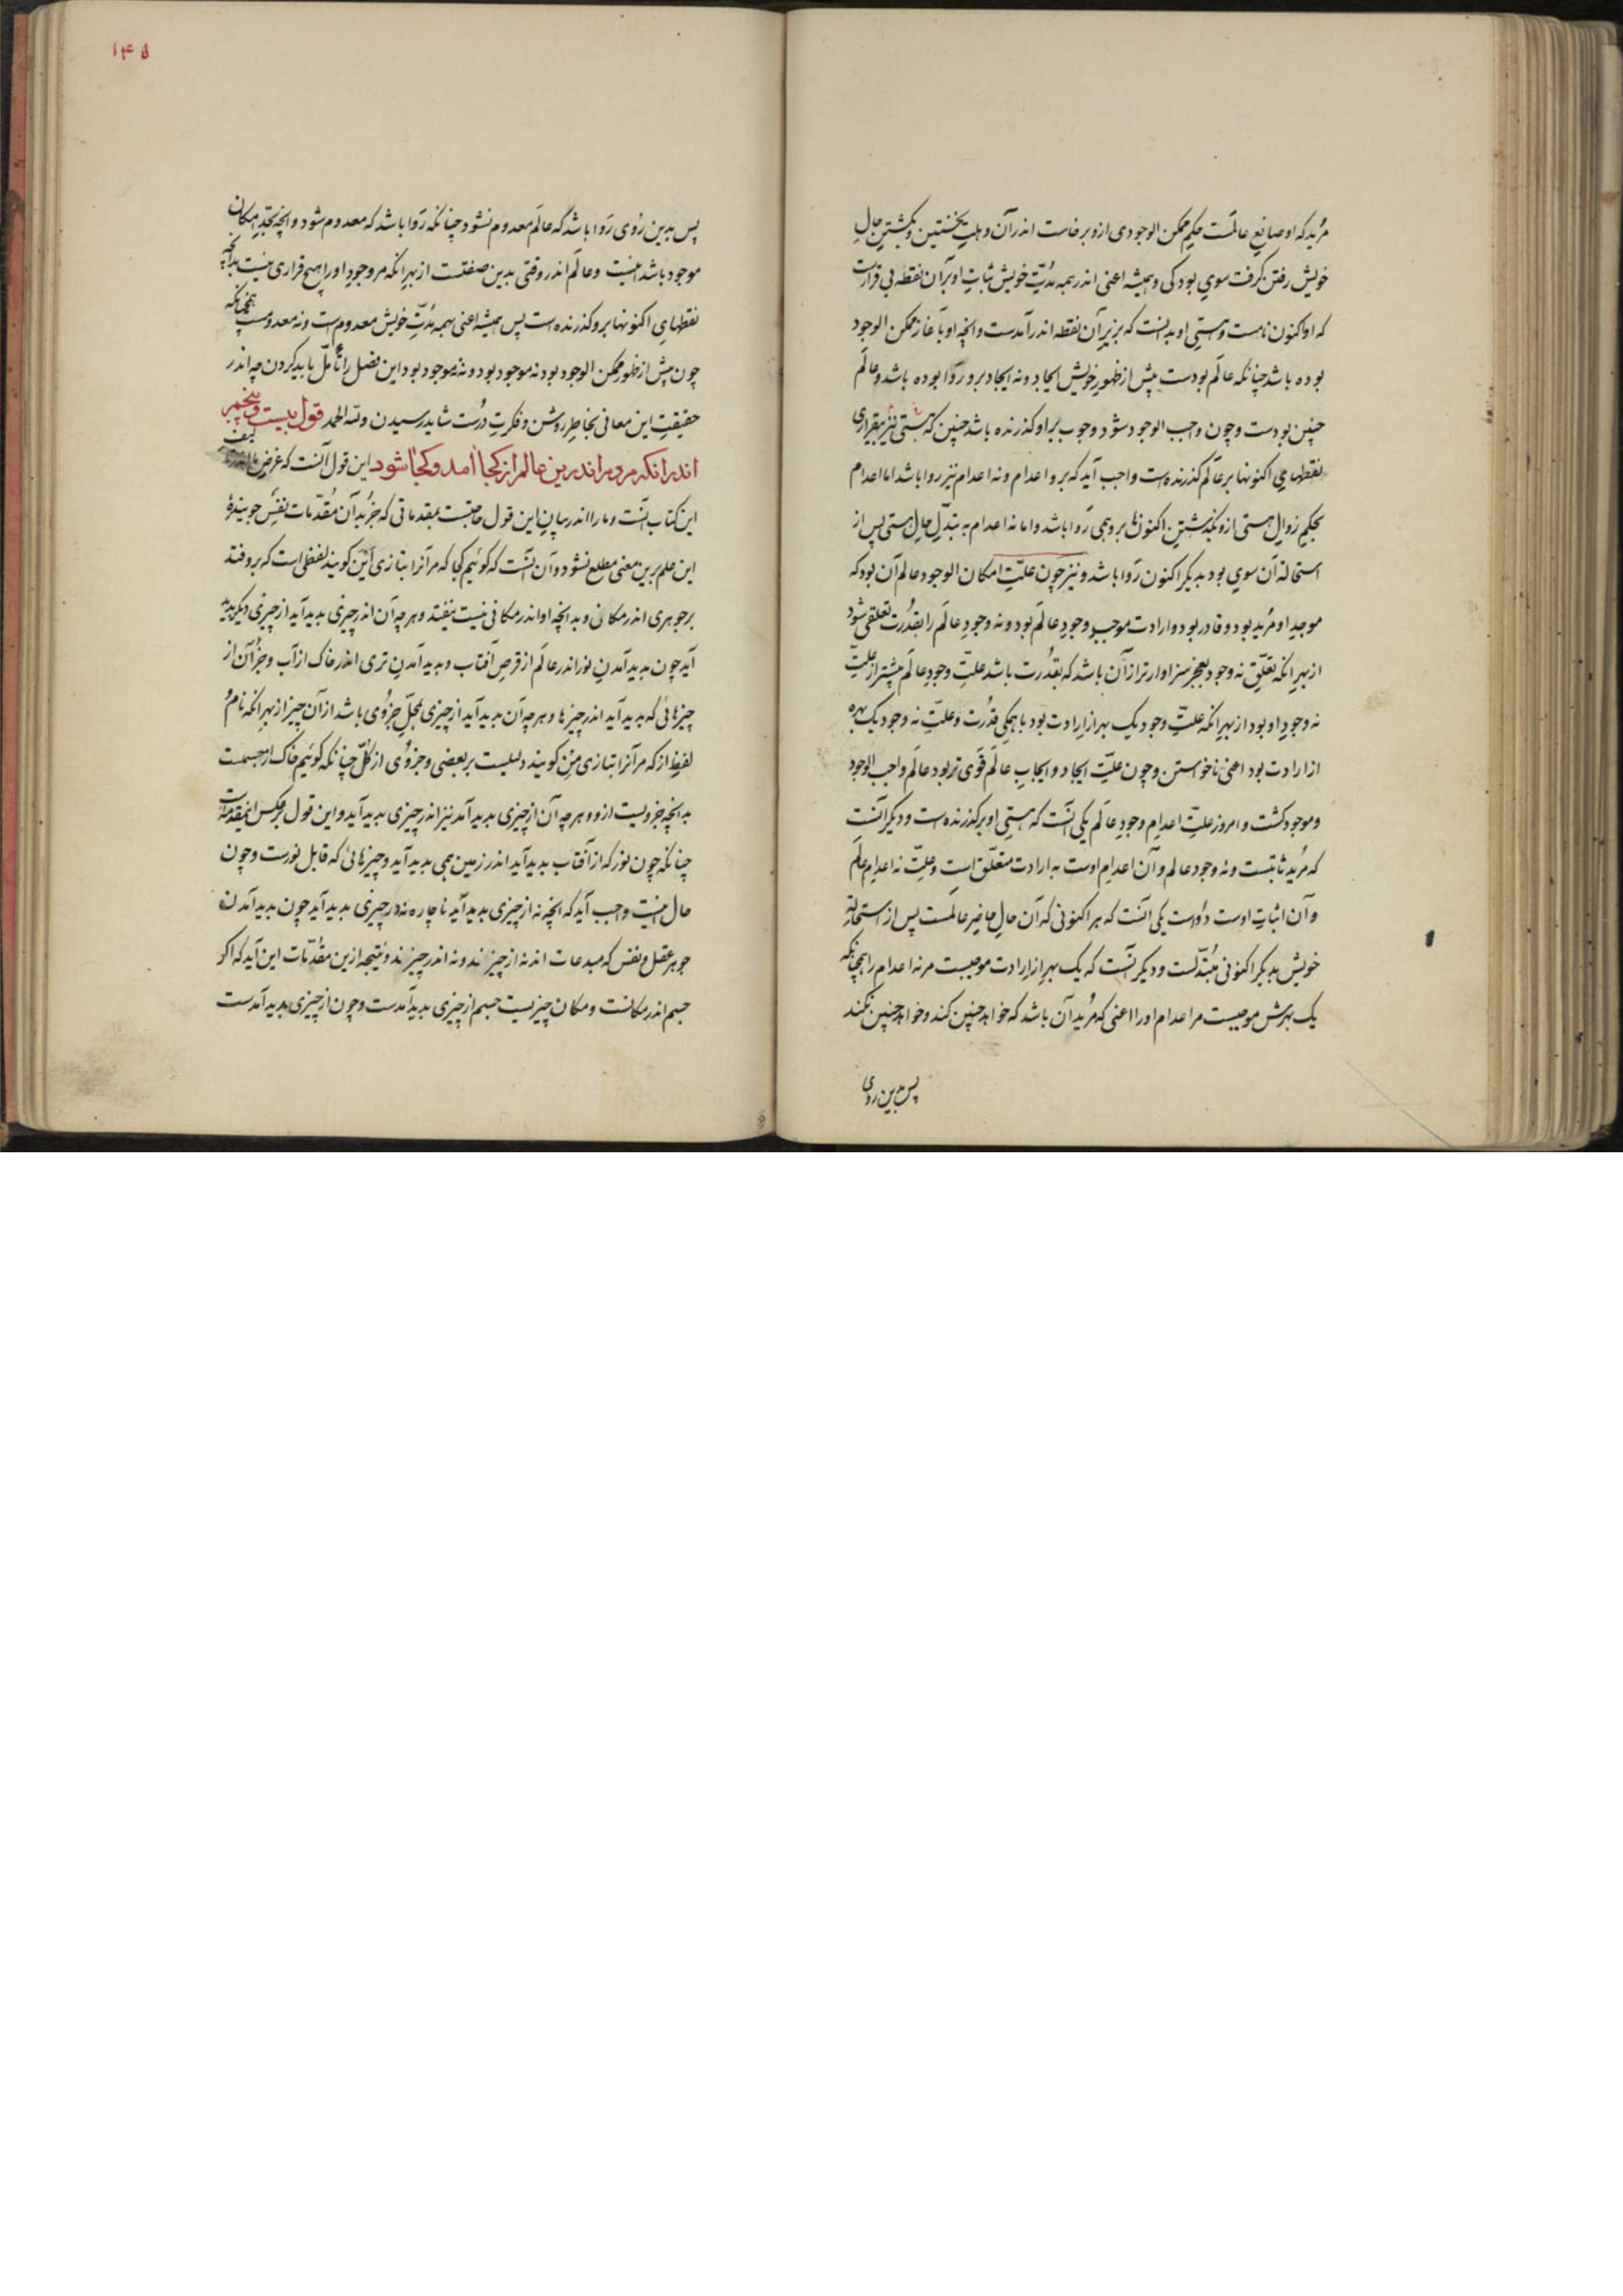 مُرید که او صانعِ عالمَست حکمِ ممکن الوجودی ازو برخاست اندر آن وهلتِ نخستین و بگشتنِ حالِ
خویش رفتن گرفت سوی بودگی و همیشه اعنی اندر همه مدّتِ خویش ثباتِ او بر آن نقطه بی قرارست
که او اکنون نامست و هستیِ او بدانست که بزیرِ آن نقطه اندر آمدست و آنچه او بآغاز ممکن الوجود
بوده باشد چنانکه عالَم بودست پیش از ظهورِ خویش ایجاد و نه ایجاد برو روا بوده باشد و عالَم
چنین بودست و چون واجب الوجود شود و وجوب بر او گذرنده باشد چنین که هستی نیز بیقراری
نقطهایِ اکنونها بر عالَم گذرنده است واجب آید که برو اعدام و نه اعدام نیز روا باشد اما اعدام
بحکمِ زوالِ هستی ازو بگذشتنِ اکنونها برو همی رَوا باشد و اما نه اعدام به تبدّلِ حالِ هستی پس از
استحالهٔ آن سوی بود بدیگر اکنون رَوا باشد و نیز چون علّتِ امکان الوجود عالم آن بود که
موجدِ او مُرید بود و قادر بود و ارادت موجب وجودِ عالَم بود و نه وجودِ عالَم را بقُدرت تعلقی شود
از بهرِ آنکه تعلّقِ نه وجود بعجز سزاوارتر از آن باشد که بقُدرت باشد علتِ وجودِ عالَم بیشتر از علتِ
نه وجودِ او بود از بهرِ آنکه علّتِ وجود یک بهر از ارادت بود با همگیِ قدُرت و علّتِ نه وجود یک بهره
از ارادت بود اعنی ناخواستن و چون علّتِ ایجاد و ایجابِ عالَم قَوی تر بود عالَم واجب الوجود
و موجود گشت و امروز علتِ اعدامِ وجودِ عالَم یکی آنست که هستیِ او برگذرنده است و دیگر آنست
که مُرید ثابتست و نه وجود عالم و آن اعدام اوست به ارادت متعلّق است و علّتِ نه اعدامِ عالَم
و آن اثباتِ اوست دُو است یکی آنست که هر اکنونی که آن حالِ حاضرِ عالمست پس از استحالهٔ
خویش بدیگر اکنونی مُبتدّلست و دیگر آنست که یک بهر از ارادت موجبست مر نه اعدام را همچنانکه
یک بهرش موجبست مر اعدام او را اعنی که مُرید آن باشد که خواهد چنین کند و خواهد چنین نکند
پس بدین روی
۱۴۵
پس بدین رُوی رَوا باشد که عالَم معدوم نشود چنانکه رَوا باشد که معدوم شود و آنچه بحدِّ امکان
موجود باشد اینست و عالَم اندر وقتی بدین صفتست از بهرِ آنکه مر وجودِ او را هیچ قراری نیست بدانچه
نقطهایِ اکنونها برو گذرنده است پس همیشه اعنی بهمه مُدّتِ خویش معدوم است و نه معدومست همچنانکه
چون پیش از ظهور ممکن الوجود بود نه موجود بود و نه نه موجود بود این فصل را تأمّل باید کردن چه اندر
حقیقتِ این معانی بخاطرِ روشن و فکرتِ درُست شاید رسیدن و لله الحمد قول بیست و پنجم
اندر آنکه مردم اندرین عالم از کجا آمد و کجا شود این قول آنست که غرضِ ما از تألیف
این کتاب آنست و ما را اندر بیانِ این قول حاجتست بمقدماتی که جز بر آن مُقدّمات نفسِ جویندهٔ
این علم برین معنی مطلع نشود و آن آنست که گوئیم کجا که مر آنرا بتازی اَیْن گویند لفظی است که بر و فتد
بر جوهری اندر مکانی و بدانچه او اندر مکانی نیست نیفتد و هر چه آن اندر چیزی بدید آید از چیزی دیگر بدید
آید چون بدید آمدنِ نور اندر عالَم از قرصِ آفتاب و بدید آمدنِ تری اندر خاک از آب و جز آن از
چیزهائی که بدید آید اندر چیزها و هر چه آن بدید آید از چیزی بمحلِّ جزُوی باشد از آن چیز از بهرِ آنکه نامُ
لفظِ از که مر آنرا بتازی مِنْ گویند دلیلست بر بعضی و جزوُی از کُلّ چنانکه گوئیم خاک از جسمست
بدانچه جزویست ازو و هر چه آن از چیزی بدید آمد نیز اندر چیزی بدید آید و این قول بر عکس این مقدمه است
چنانکه چون نور که از آفتاب بدید آید اندر زمین همی بدید آید و چیزهائی که قابل نورست و چون
حال اینست واجب آید که آنچه نه از چیزی بدید آید ناچاره نه در چیزی بدید آید چون بدید آمدن
جوهر عقل و نفس که مبدعات اند نه از چیزند و نه اندر چیزند و نتیجه ازین مقُدّمات این آید که اگر
جسم اندر مکانست و مکان چیزیست جسم از چیزی بدید آمدست و چون از چیزی بدید آمدست